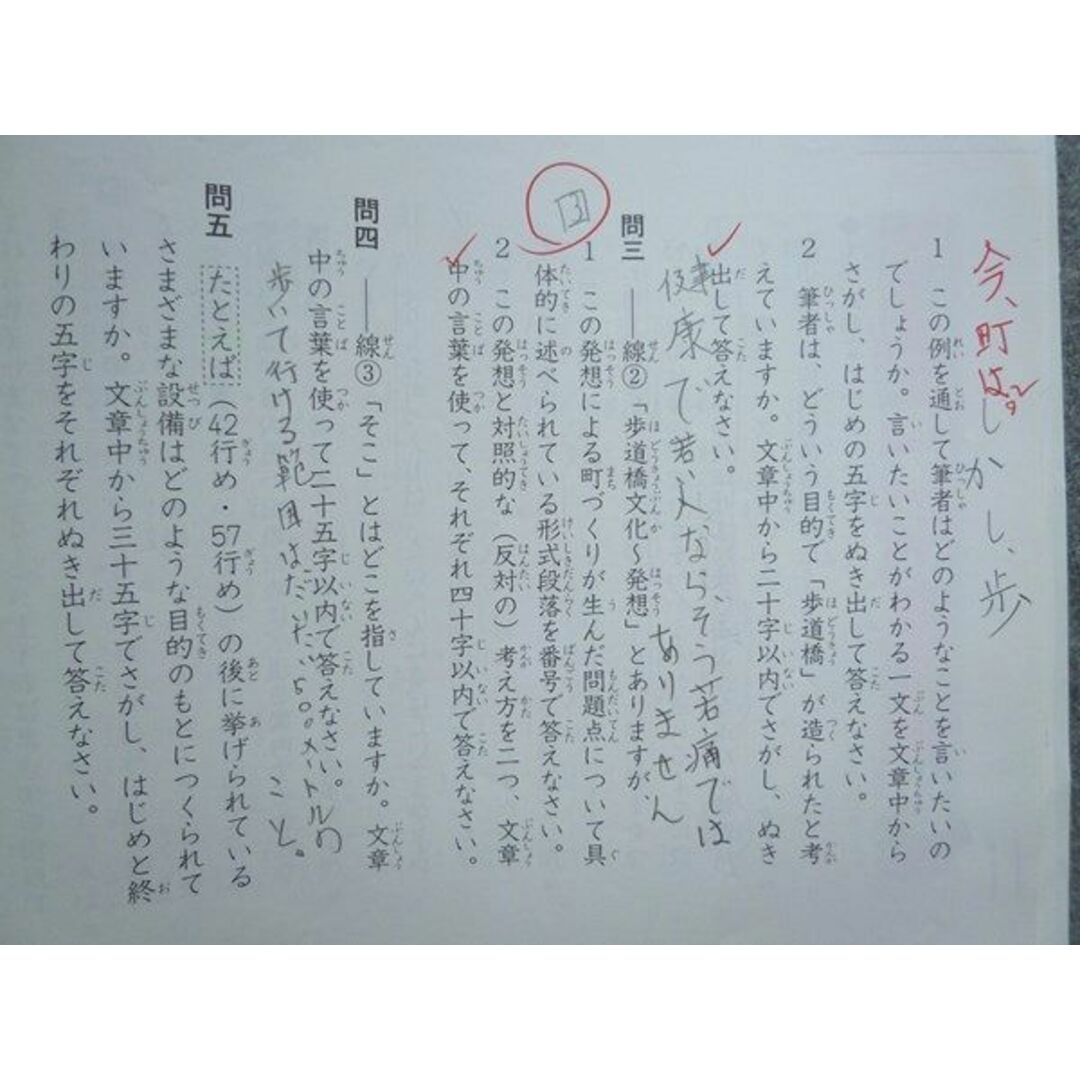 今、町は。
しかし、歩
1 この例を通して筆者はどのようなことを言いたいの
でしょうか。言いたいことがわかる一文を文章中から
さがし、はじめの五字をぬき出して答えなさい。
2 筆者は、どういう目的で「歩道橋」が造られたと考
えていますか。文章中から二十字以内でさがし、ぬき
出して答えなさい。
健康で若い人なら、そう苦痛では
ありません
問三 ――線②「歩道橋文化〜発想」とありますが、
1 この発想による町づくりが生んだ問題点について具
体的に述べられている形式段落を番号で答えなさい。
3
2 この発想と対照的な（反対の）考え方を二つ、文章
中の言葉を使って、それぞれ四十字以内で答えなさい。
問四 ――線③「そこ」とはどこを指していますか。文章
中の言葉を使って二十五字以内で答えなさい。
歩いて行ける範囲はだいたい500メートルの
こと。
問五 たとえば（42行め・57行め）の後に挙げられている
さまざまな設備はどのような目的のもとにつくられて
いますか。文章中から三十五字でさがし、はじめと終
わりの五字をそれぞれぬき出して答えなさい。